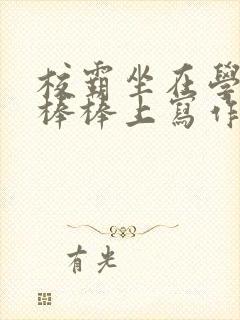 校霸坐在學
棒棒上寫作
有光